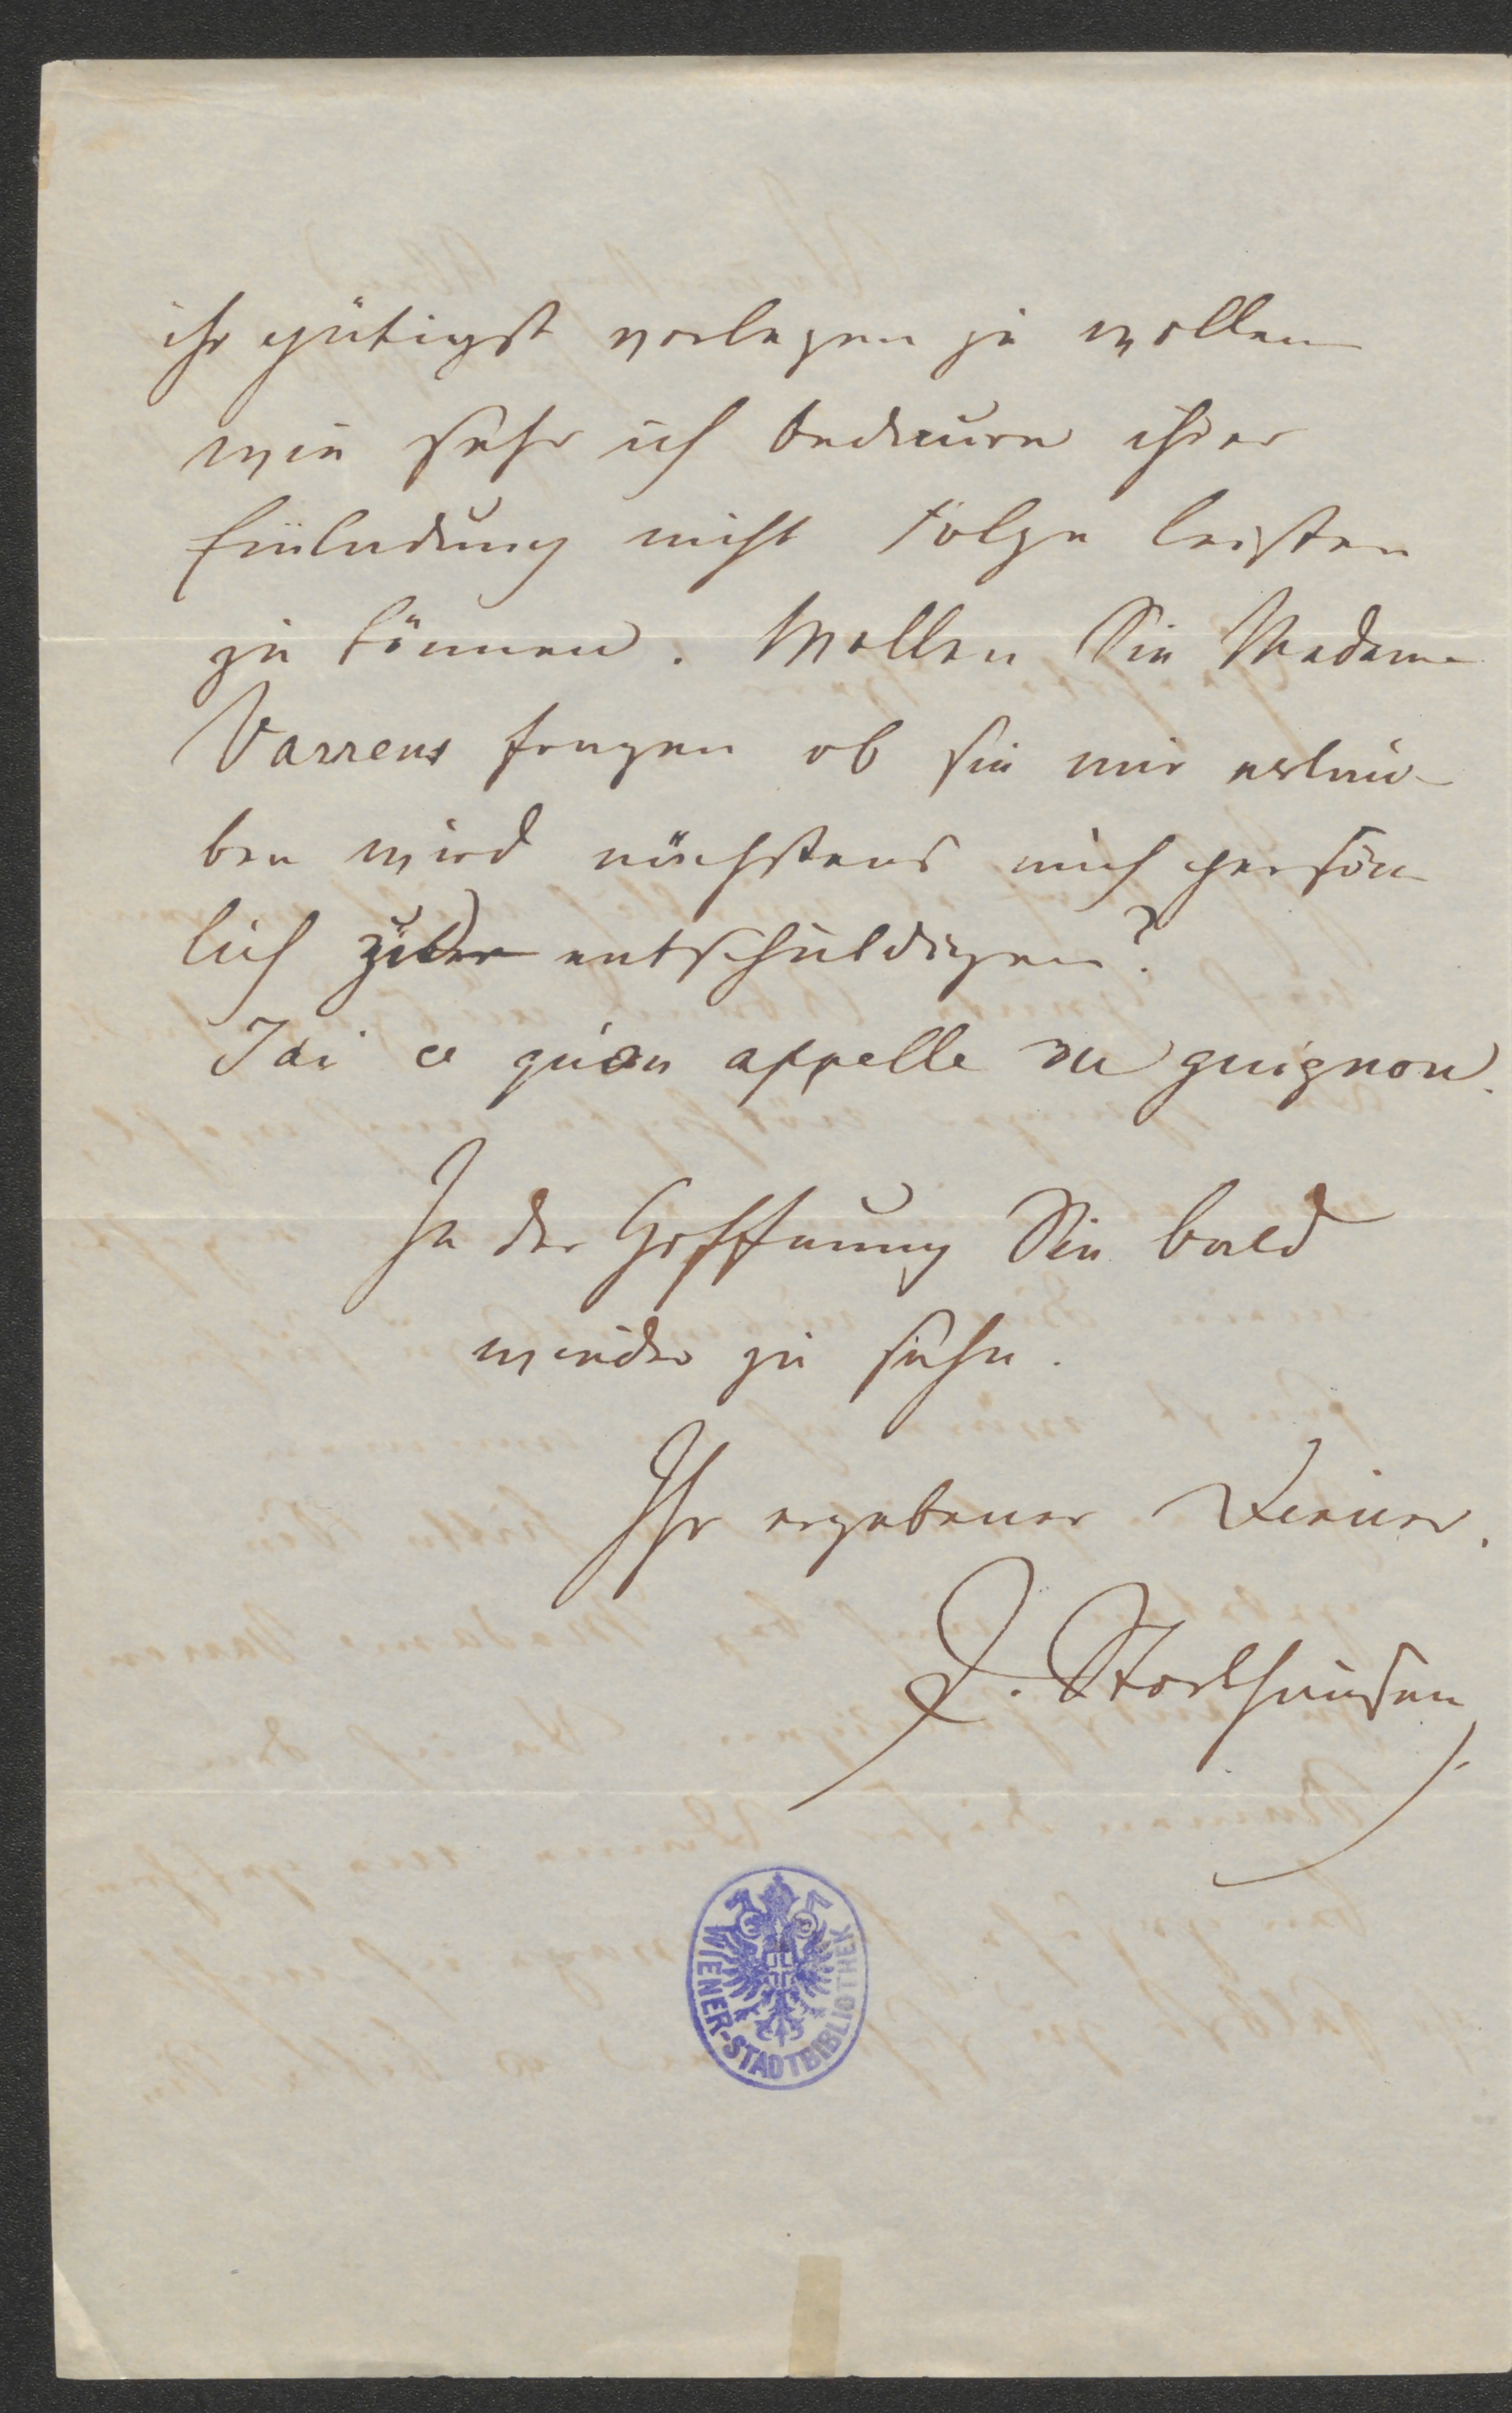 ihr gütigst vorlegen zu wollen
wie sehr ich bedaure ihrer
Einladung nicht Folge leisten
zu können. Wollen Sie Madame
Varrens fragen ob sie mir erlau-
ben wird nächstens mich persön
lich zu entschuldigen?
J'ai ce qu'on appelle du guignon.
In der Hoffnung Sie bald
wieder zu sehn.
Ihr ergebener Diener.
J. Stockhausen
WIENER-STADTBIBLIOTHEK